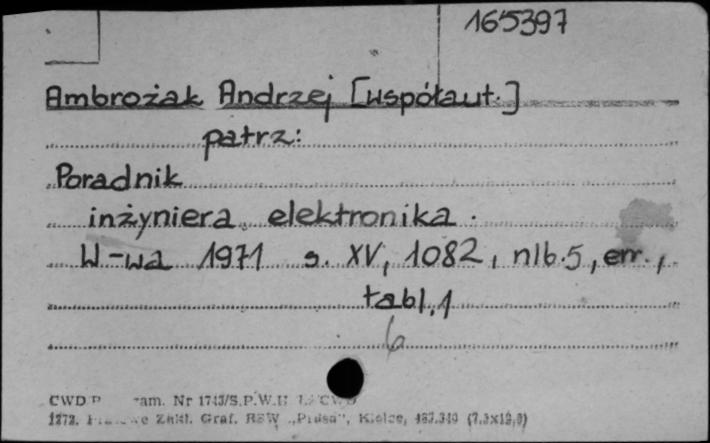 165397
Ambrożak Andrzej [współaut.]
patrz:
Poradnik
inżyniera elektronika.
W-wa 1971 s. XV, 1082, nlb.5, err.,
tabl. 1
6
CWD zam. Nr 1743/S.P.W.H
Zakł. Graf. RSW „Prasa", Kielce,